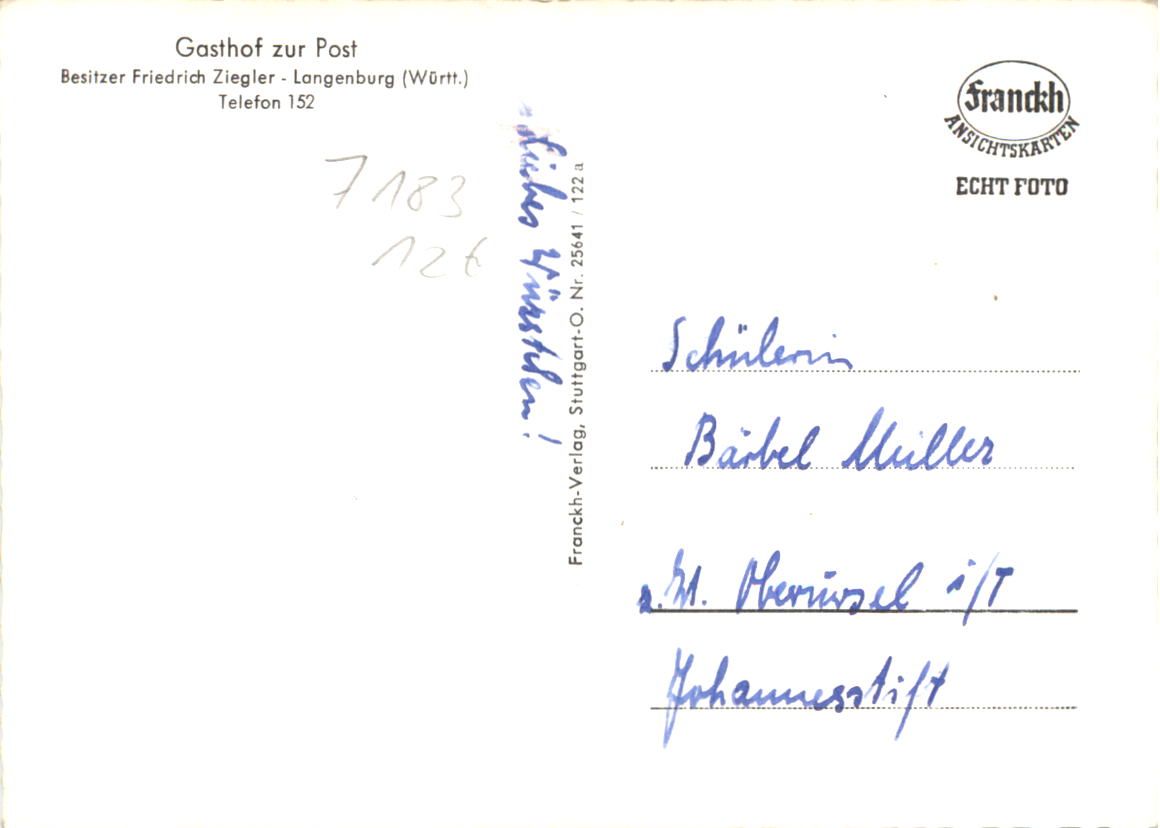 Gasthof zur Post
Besitzer Friedrich Ziegler - Langenburg (Württ.)
Telefon 152
7183
12€
Liebes Würstchen!
Franckh-Verlag, Stuttgart-O. Nr. 25641 / 122 a
Franckh
ANSICHTSKARTEN
ECHT FOTO
Schülerin
Bärbel Müller
z. Zt. Oberursel i/T
Johannesstift